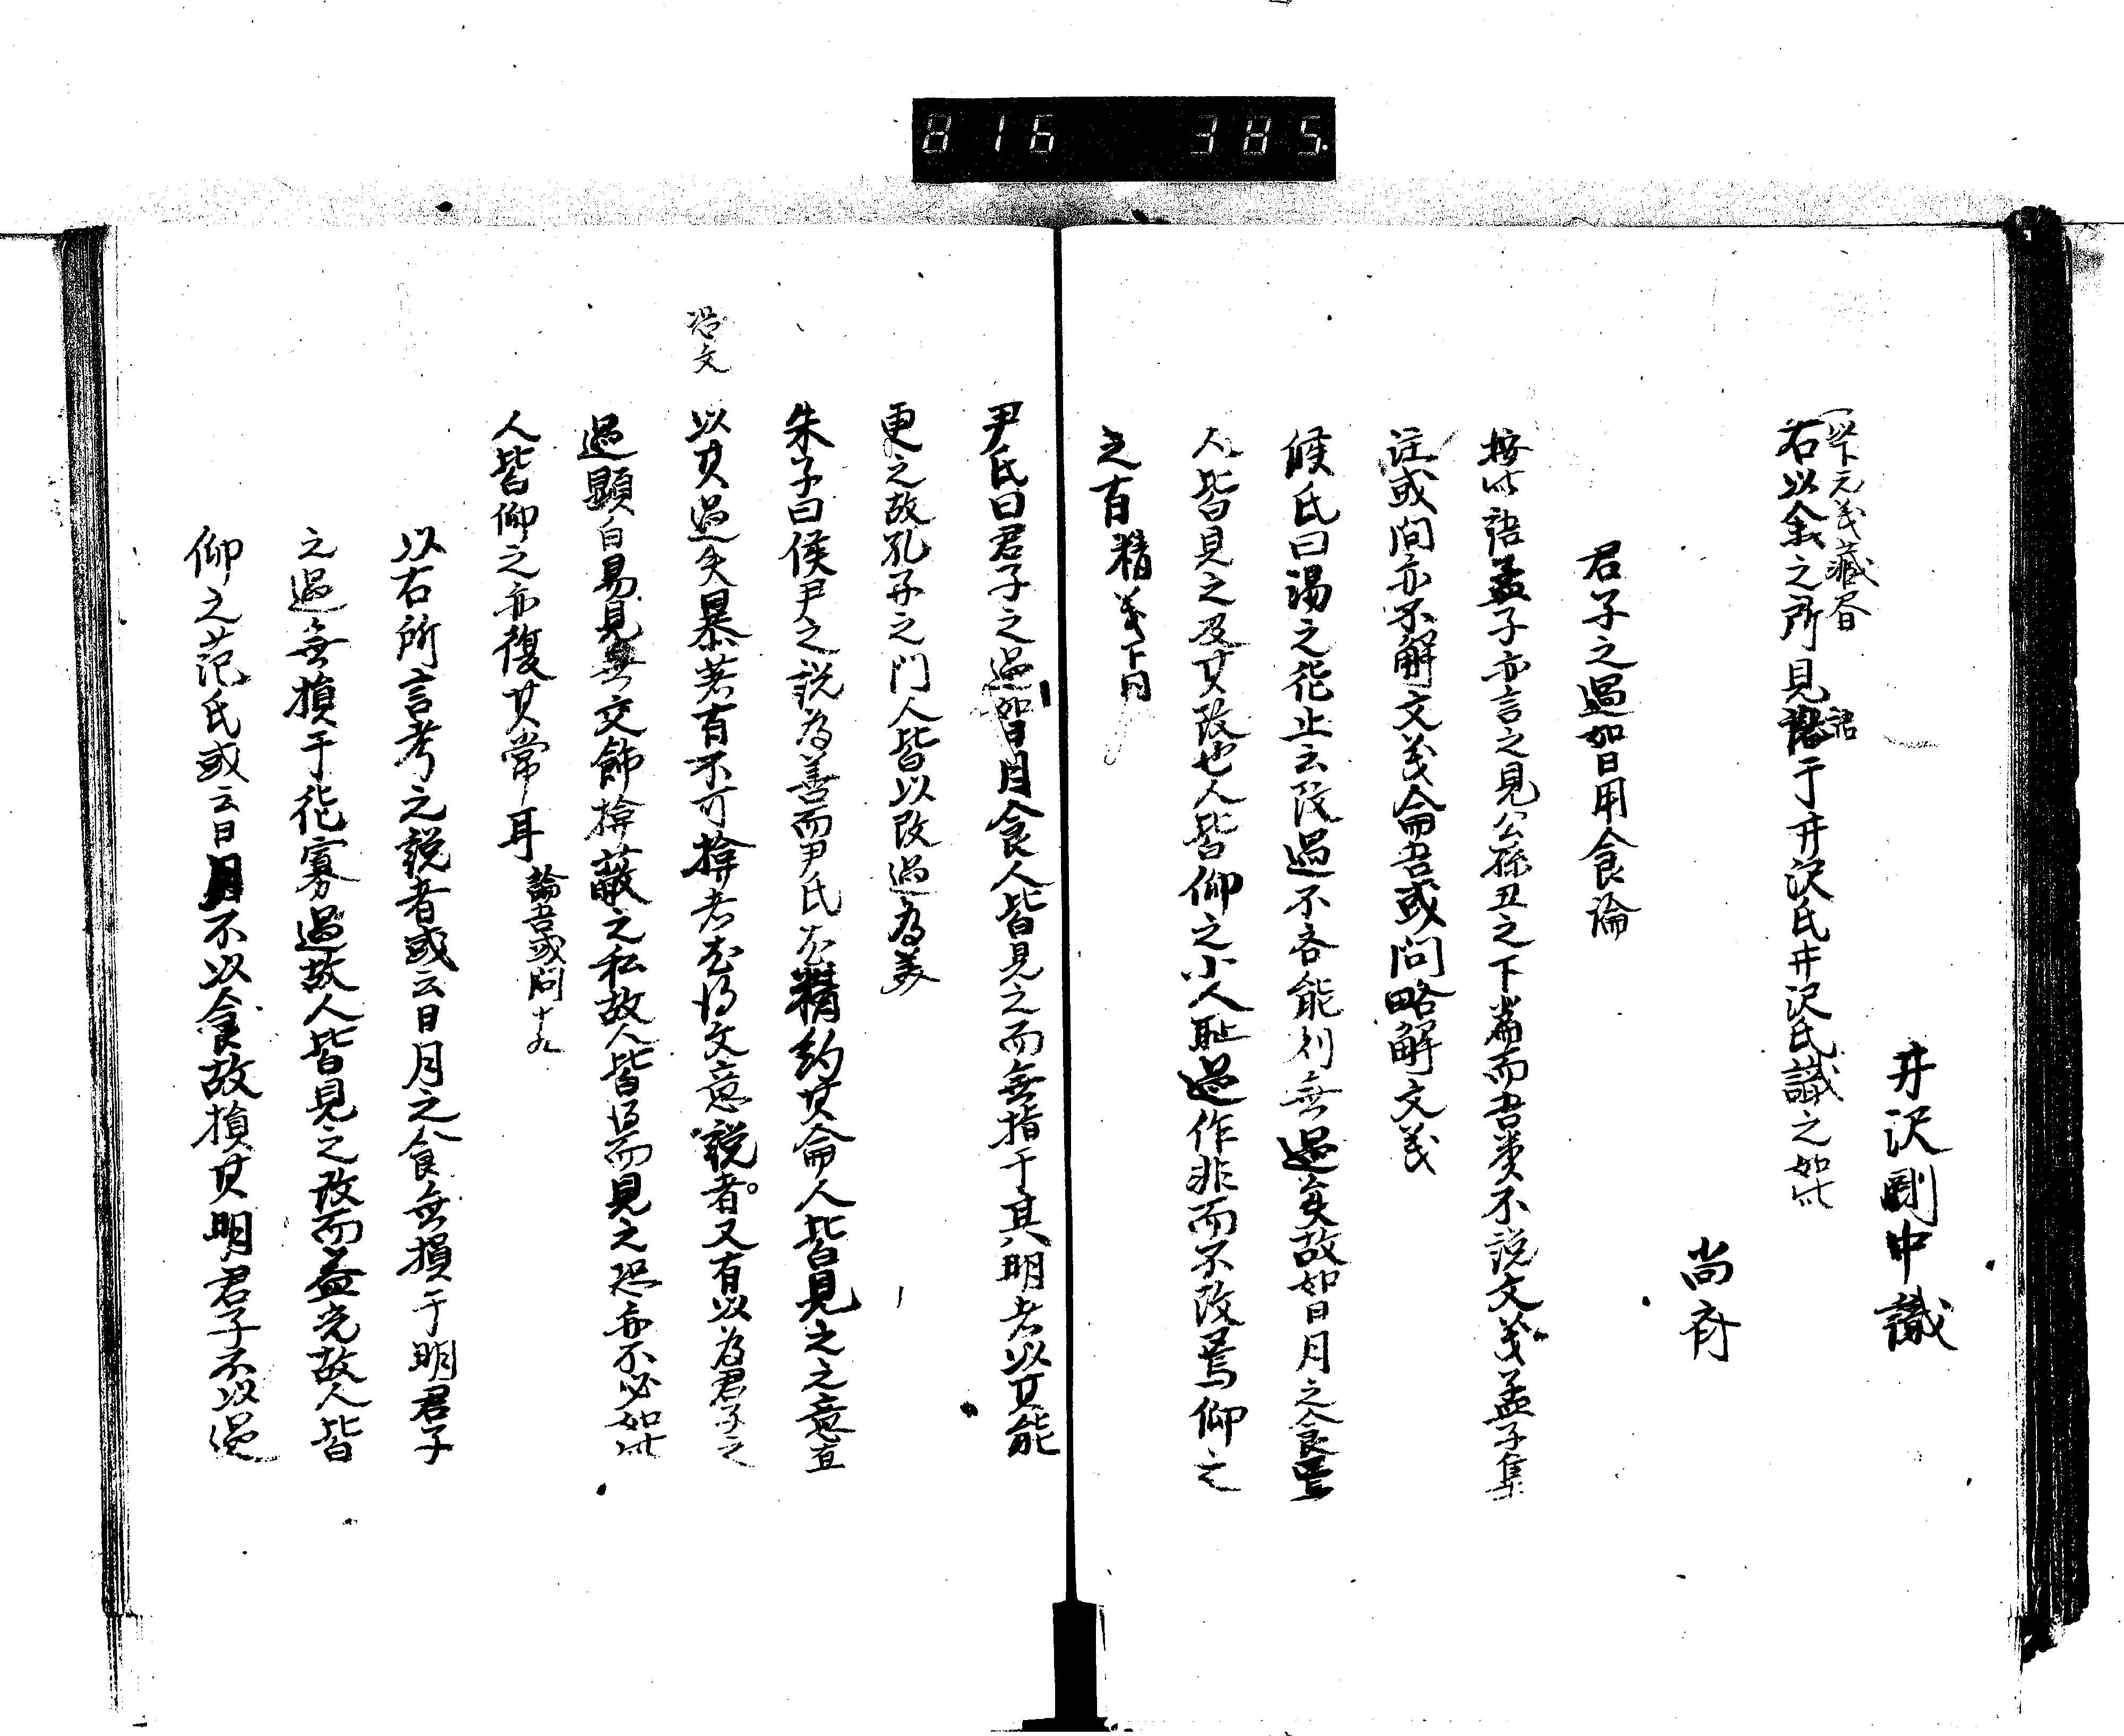 816 385
井沢剛中識
以下元義藏
右以金之所見語于井沢氏井沢氏識之如此
尚斎
君子之過如日用食論
按此語孟子亦言之見公孫丑之下篇而書类不説文義孟子集
注或問亦不解文義論吾或問略解文義
候氏曰湯之徳止云改過不吝能則無過矣故如日月之食焉
人皆見之及其改也人皆仰之小人耻過作非而不改焉仰之
之有 精義下同
尹氏曰君子之過如日月食人皆見之而無指于其明者以其能
更之故孔子之門人皆以改過為美
朱子曰侯尹之説為善而尹氏尤精約其論人皆見之之意直
以其過失暴著有不可揜者尤得文意説者又有以為君子之
過顕白易見無交飾揜蔽之私故人皆得而見之恐亦不必如此
人皆仰之亦復其常耳 論吾或問十九
以右所言考之説者或云日月之食無損于明君子
之過無損于徳寡過故人皆見之改而益光故人皆
仰之范氏或云日月不以食故損其明君子不以過